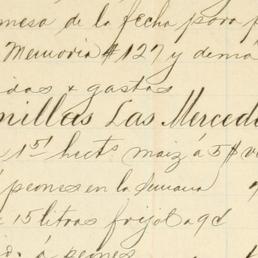 mesa de la fecha para p
Memoria #127 y demá
idas & gastos
millas Las Merced
15 hects maiz á 5$ v
peones en la semana
e 15 litros frijol a 9c
id. á peones